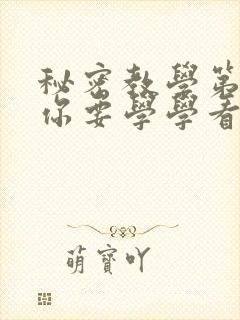 秘密教學第
你要學學看
萌寶吖